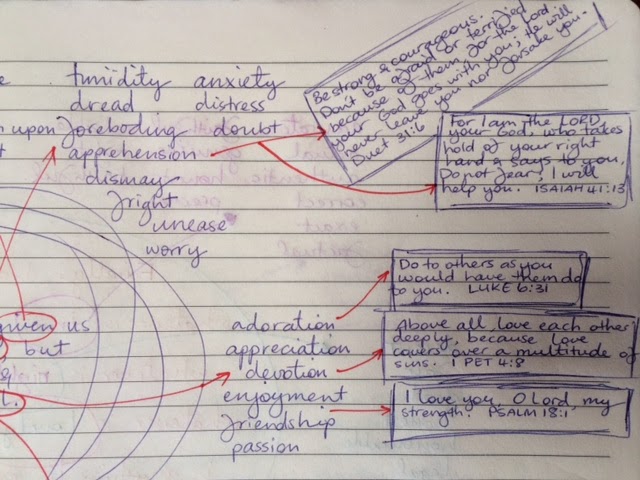 timidity anxiety
dread distress
upon foreboding doubt
apprehension
dismay
fright
unease
worry
Be strong & courageous.
Don't be afraid or terrified
because of them for the Lord
your God goes with you; He will
never leave you nor forsake you.
Duet 31:6
For I am the LORD
your God, who takes
hold of your right
hand & says to you,
Do not fear; I will
help you. ISAIAH 41:13
Do to others as you
would have them do
to you. LUKE 6:31
given us
but
&
adoration
appreciation
devotion
enjoyment
friendship
passion
Above all love each other
deeply, because love
covers over a multitude of
sins. 1 PET 4:8
I love you, O Lord, my
strength. PSALM 18:1